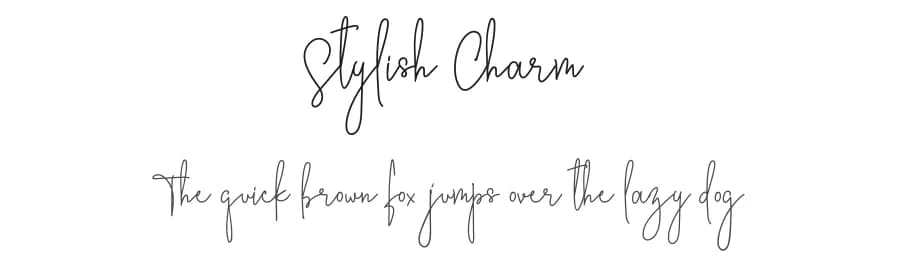 Stylish Charm
The quick brown fox jumps over the lazy dog